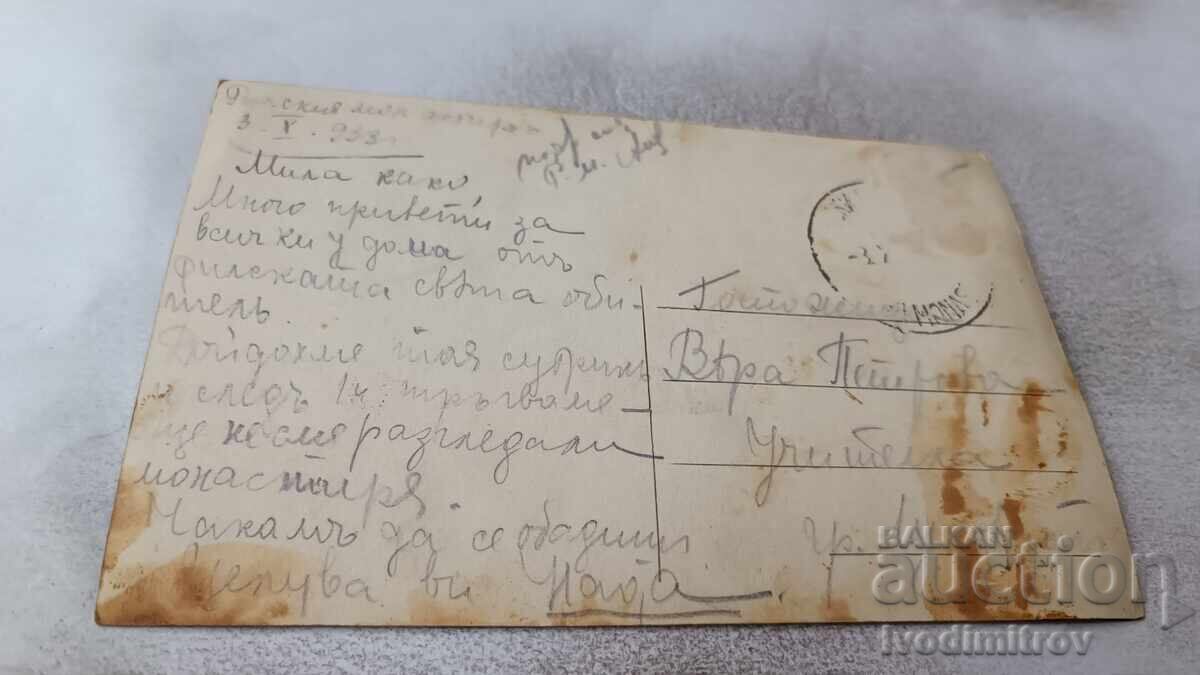 3. X. 933г.
Мила како,
Много привети за
всички у дома отъ
света оби-
тель.
Дойдохме тая сутринь
и следъ 1ч. тръгваме
още не сме разгледали
монастиря.
Чакамъ да се обадиш
Целува ви Надя.
Госпожица
Вѣра Петрова
Учителка
Гр.
BALKAN
auction
ivodimitrov